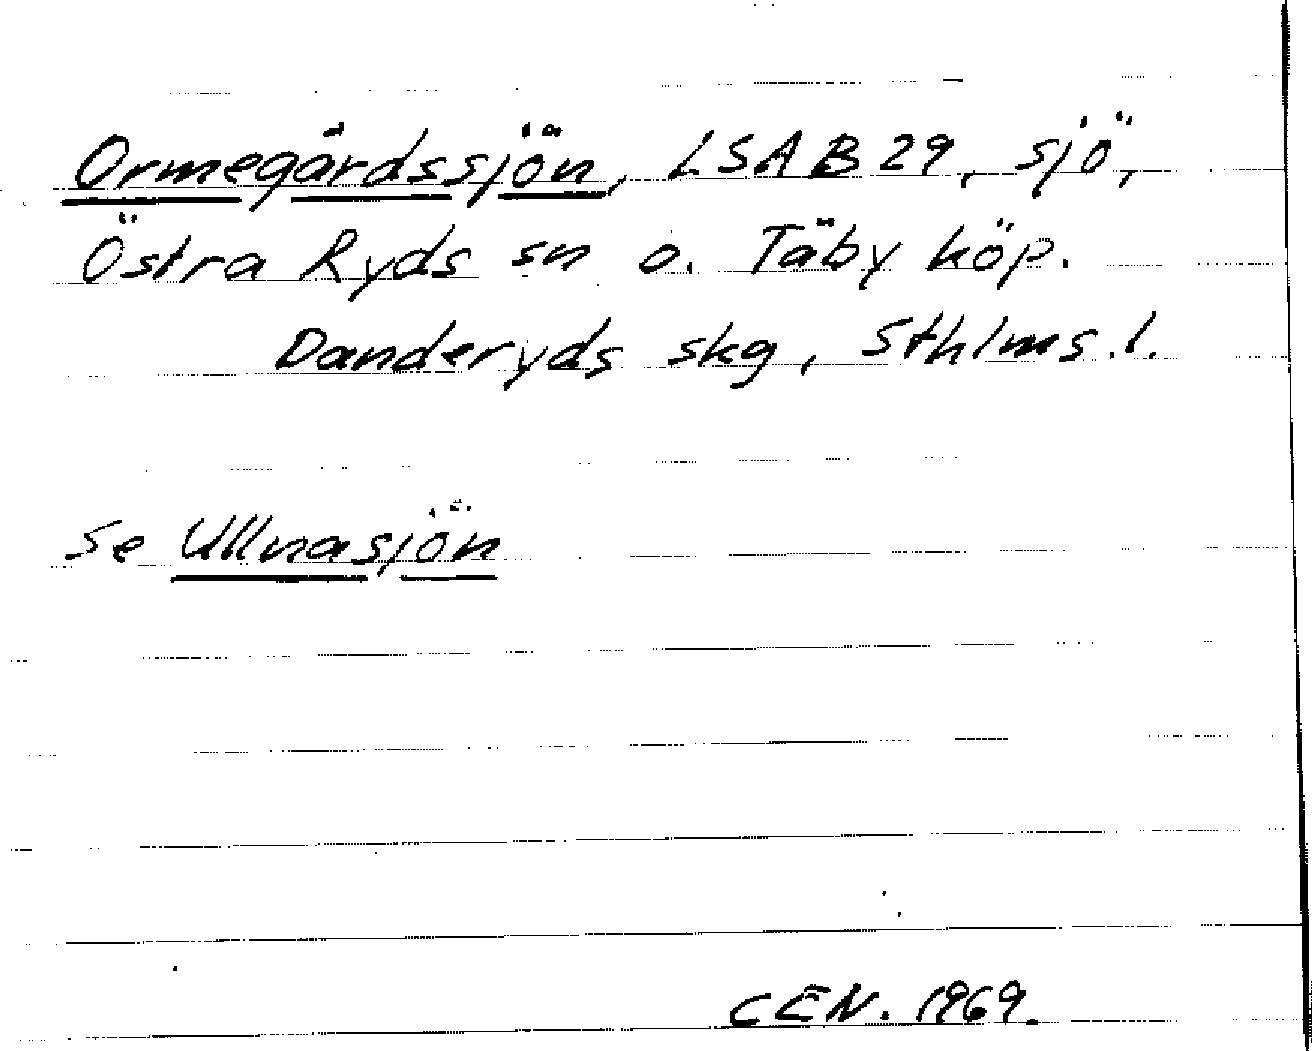 Ormegårdssjön, LSA B 29, sjö,
Östra Ryds sn o. Täby köp.
Danderyds skg, Sthlms.l.
Se Ullnasjön
CEN. 1969.